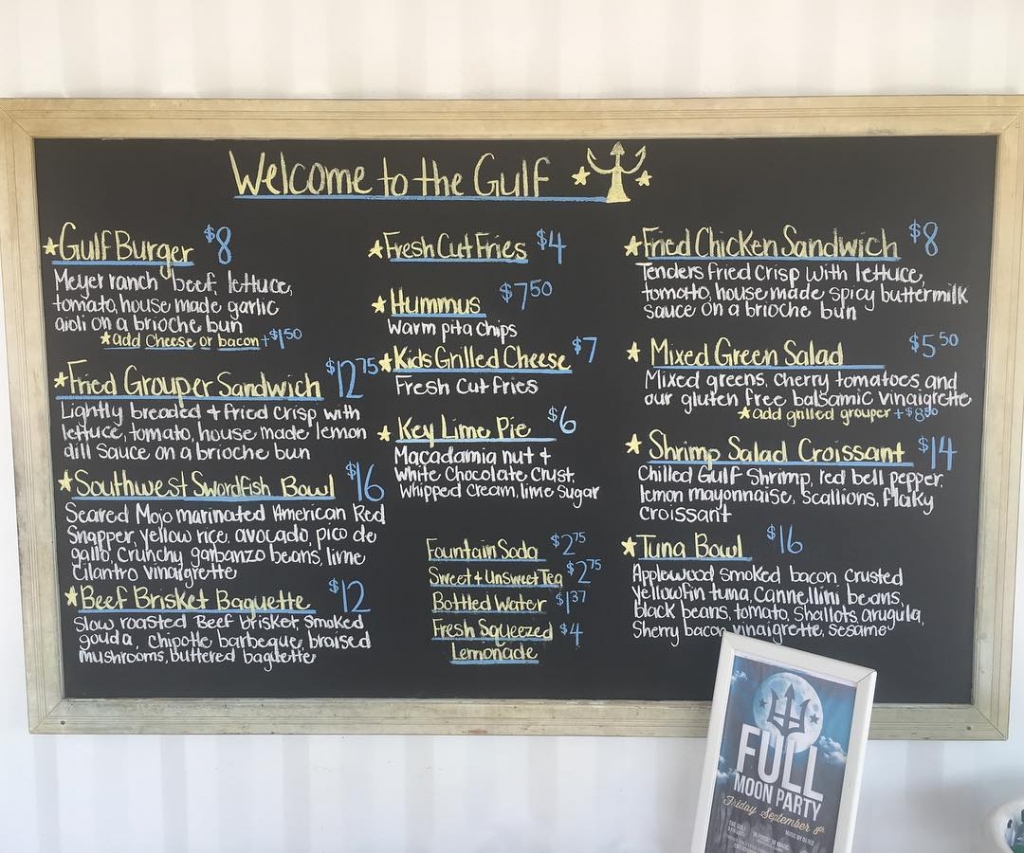 Welcome to the Gulf
Gulf Burger $8
Meyer ranch beef, lettuce,
tomato, house made garlic
aioli on a brioche bun
add cheese or bacon +$1.50
Fried Grouper Sandwich $12.75
Lightly breaded + fried crisp with
lettuce, tomato, house made lemon
dill sauce on a brioche bun
Southwest Swordfish Bowl $16
Seared Mojo marinated American Red
Snapper, yellow rice, avocado, pico de
gallo, crunchy garbanzo beans, lime
cilantro vinaigrette
Beef Brisket Baguette $12
Slow roasted Beef brisket, smoked
gouda, Chipotle barbeque, braised
mushrooms, buttered baguette
Fresh Cut Fries $4
Hummus $7.50
Warm pita chips
Kids Grilled Cheese $7
Fresh Cut Fries
Key Lime Pie $6
Macadamia nut +
White Chocolate Crust,
Whipped Cream, lime sugar
Fountain Soda $2.75
Sweet + Unsweet Tea $2.75
Bottled Water $1.37
Fresh Squeezed $4
Lemonade
Fried Chicken Sandwich $8
Tenders fried crisp with lettuce,
tomatto, house made spicy buttermilk
sauce on a brioche bun
Mixed Green Salad $5.50
Mixed greens, cherry tomatoes and
our gluten free balsamic vinaigrette
add grilled grouper +$8.50
Shrimp Salad Croissant $14
Chilled Gulf Shrimp, red bell pepper,
lemon mayonnaise, scallions, flaky
croissant
Tuna Bowl $16
Applewood smoked bacon crusted
yellowfin tuna, Cannellini beans,
black beans, tomato, Shallots arugula,
Sherry bacon vinaigrette, sesame
FULL
MOON PARTY
Friday September 8th